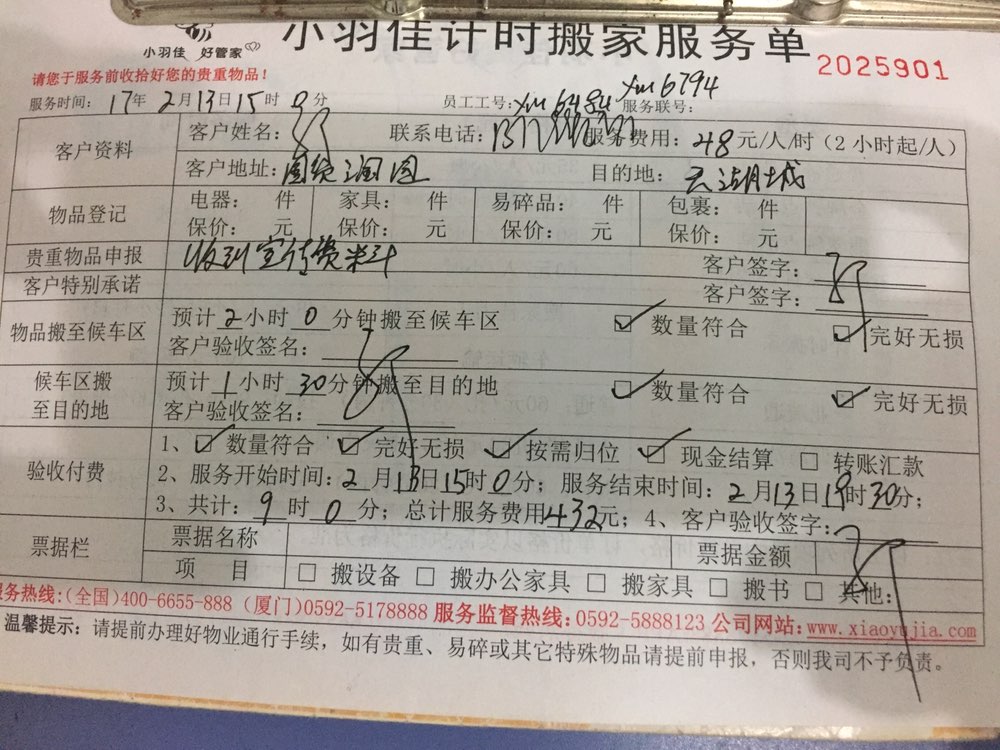 小羽佳 好管家
小羽佳计时搬家服务单
2025901
请您于服务前收拾好您的贵重物品！
服务时间：17年2月13日15时0分 员工工号：xm6484 服务联号： xm6794
客户资料 客户姓名： 联系电话： 服务费用：48元/人/时（2小时起/人）
客户地址： 目的地：
物品登记 电器： 件 家具： 件 易碎品： 件 包裹： 件
保价： 元 保价： 元 保价： 元 保价： 元
贵重物品申报 客户签字：
客户特别承诺 客户签字：
物品搬至候车区 预计2小时0分钟搬至候车区 ☑ 数量符合 ☑ 完好无损
客户验收签名：
候车区搬至目的地 预计1小时30分钟搬至目的地 ☑ 数量符合 ☑ 完好无损
客户验收签名：
验收付费 1、☑ 数量符合 ☑ 完好无损 ☑ 按需归位 ☑ 现金结算 □ 转账汇款
2、服务开始时间：2月13日15时0分；服务结束时间：2月13日19时30分；
3、共计：9时0分；总计服务费用432元；4、客户验收签字：
票据栏 票据名称 票据金额
项 目 □ 搬设备 □ 搬办公家具 □ 搬家具 □ 搬书 □ 其他：
服务热线：(全国)400-6655-888 (厦门)0592-5178888 服务监督热线：0592-5888123 公司网站：www.xiaoyujia.com
温馨提示：请提前办理好物业通行手续，如有贵重、易碎或其它特殊物品请提前申报，否则我司不予负责。